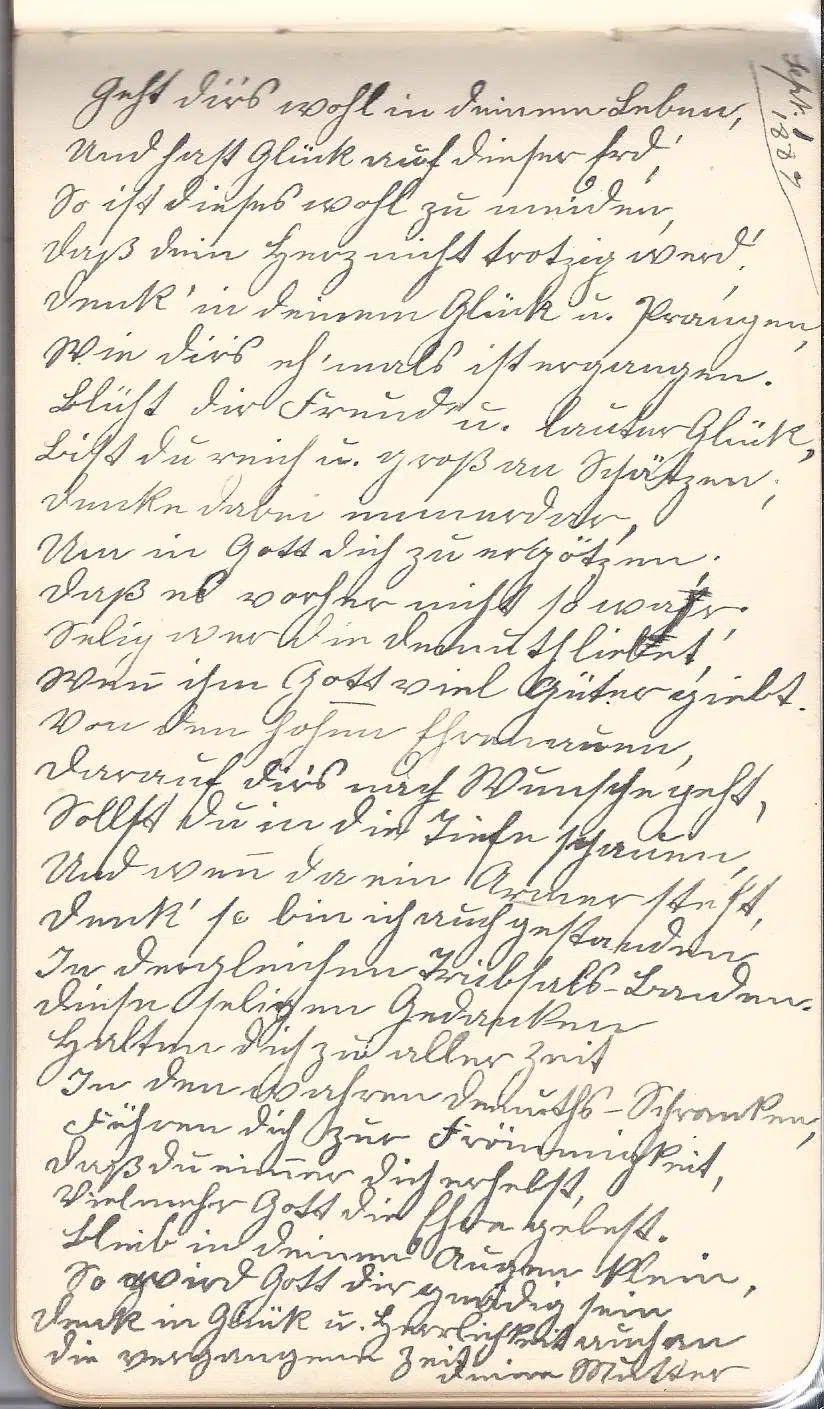 Sept. 1
1887
Geht dir's wohl in deinem Leben,
Und hast Glück auf dieser Erd',
So ist dieses wohl zu meiden,
Daß dein Herz nicht trotzig werd'.
Denk' in deinem Glück u. Prangen,
Wie dir's eh'mals ist ergangen.
Blüht dir Freud u. lauter Glück,
Bist du reich u. groß an Schätzen;
Denke dabei immerdar,
Um in Gott dich zu ergötzen.
Daß es vorher nicht so war.
Selig wer die Demuth liebet,
Weñ ihm Gott viel Güter giebt.
Von den hohen Ehrenauen,
Darauf dir's nach Wunsche geht,
Sollst du in die Tiefe schauen,
Und weñ da ein Armer steht,
Denk' so bin ich auch gestanden
In dergleichen Trübsals-Banden.
Diese seligen Gedanken
Halten dich zu aller Zeit
In den wahren Demuths-Schranken,
Führen dich zur Frömmigkeit,
Daß du nim̄er dich erhebst,
Vielmehr Gott die Ehre gebest.
Bleib in deinen Augen klein,
So wird Gott dir gnädig sein
Denk in Glük u. Herrlichkeit auch an
die vergangene Zeit
deine Mutter